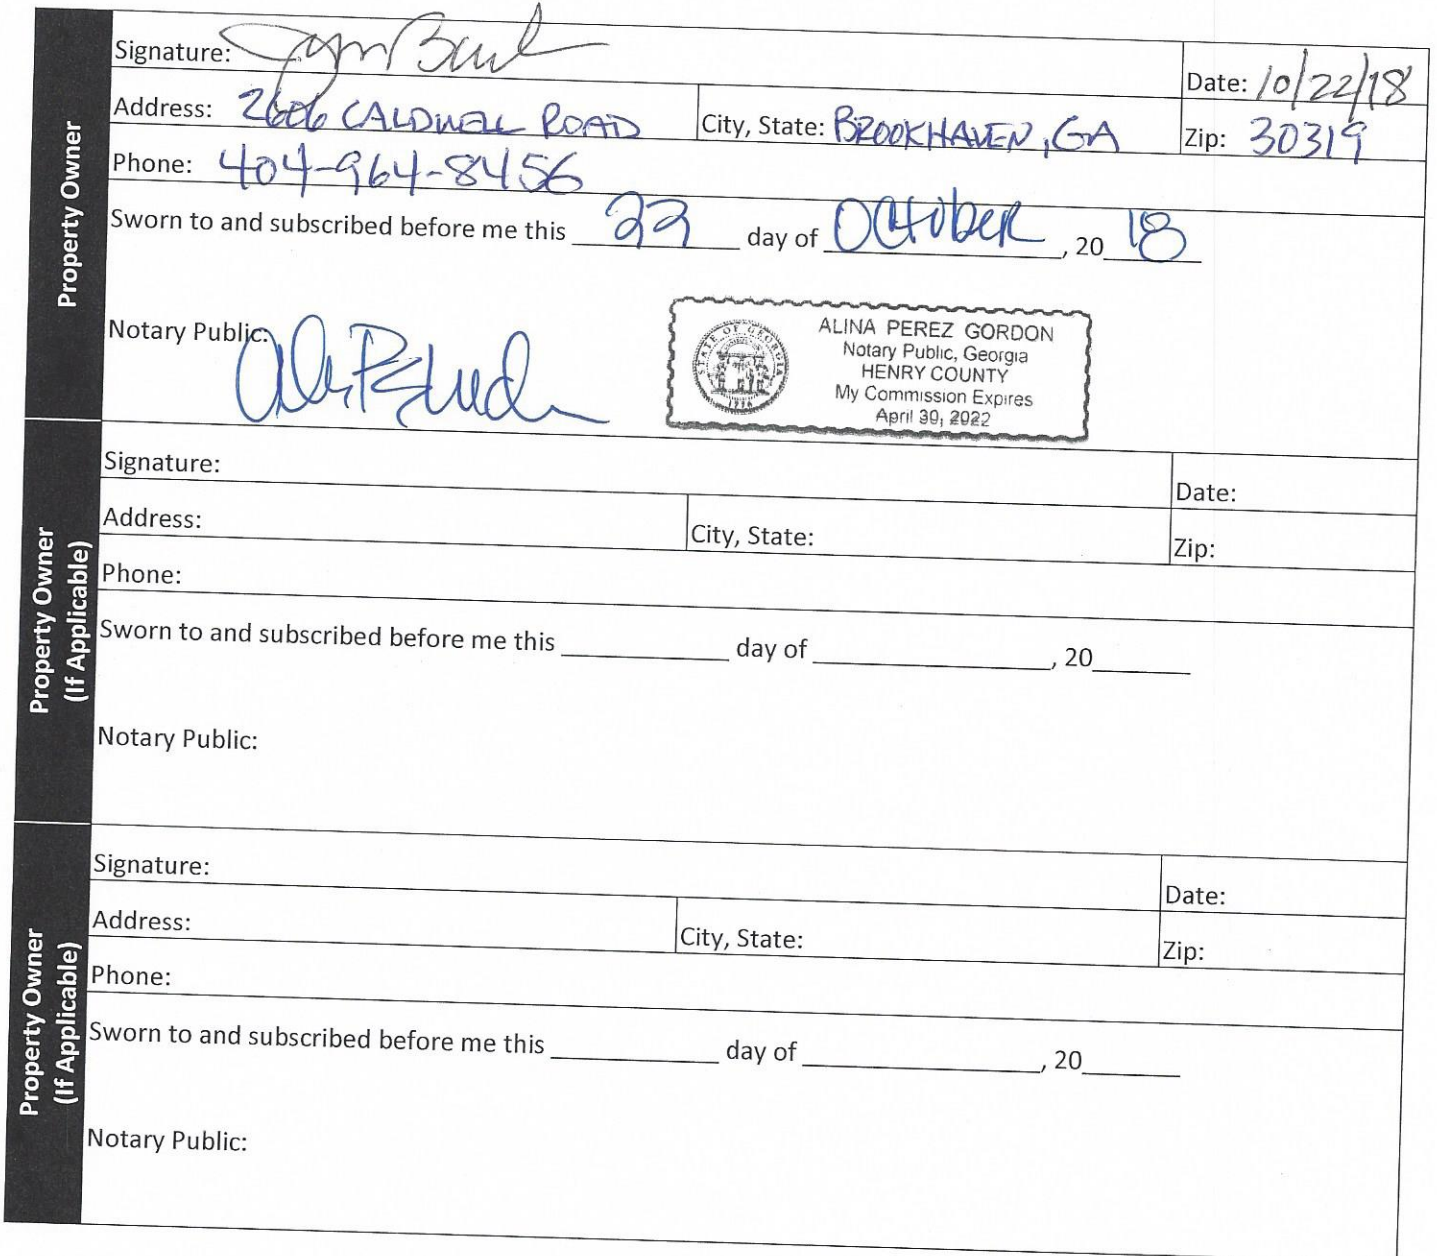 Property Owner
Signature:
Date: 10/22/18
Address: 2606 CALDWELL ROAD
City, State: BROOKHAVEN, GA
Zip: 30319
Phone: 404-964-8456
Sworn to and subscribed before me this 22 day of OCtober, 20 18
Notary Public:
STATE OF GEORGIA
1776
ALINA PEREZ GORDON
Notary Public, Georgia
HENRY COUNTY
My Commission Expires
April 30, 2022
Property Owner
(If Applicable)
Signature:
Date:
Address:
City, State:
Zip:
Phone:
Sworn to and subscribed before me this ____ day of ____, 20____
Notary Public:
Property Owner
(If Applicable)
Signature:
Date:
Address:
City, State:
Zip:
Phone:
Sworn to and subscribed before me this ____ day of ____, 20____
Notary Public: